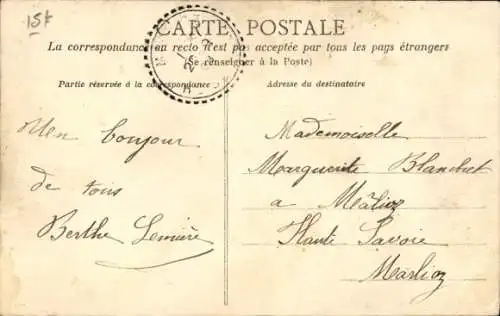 15f
CARTE POSTALE
La correspondance au recto n'est pas acceptée par tous les pays étrangers
(Se renseigner à la Poste)
Partie réservée à la correspondance
Adresse du destinataire
Mon bonjour
de tous
Berthe Lemière
Mademoiselle
Marguerite Blanchet
a Mâlioz
Haute Savoie
Marlioz